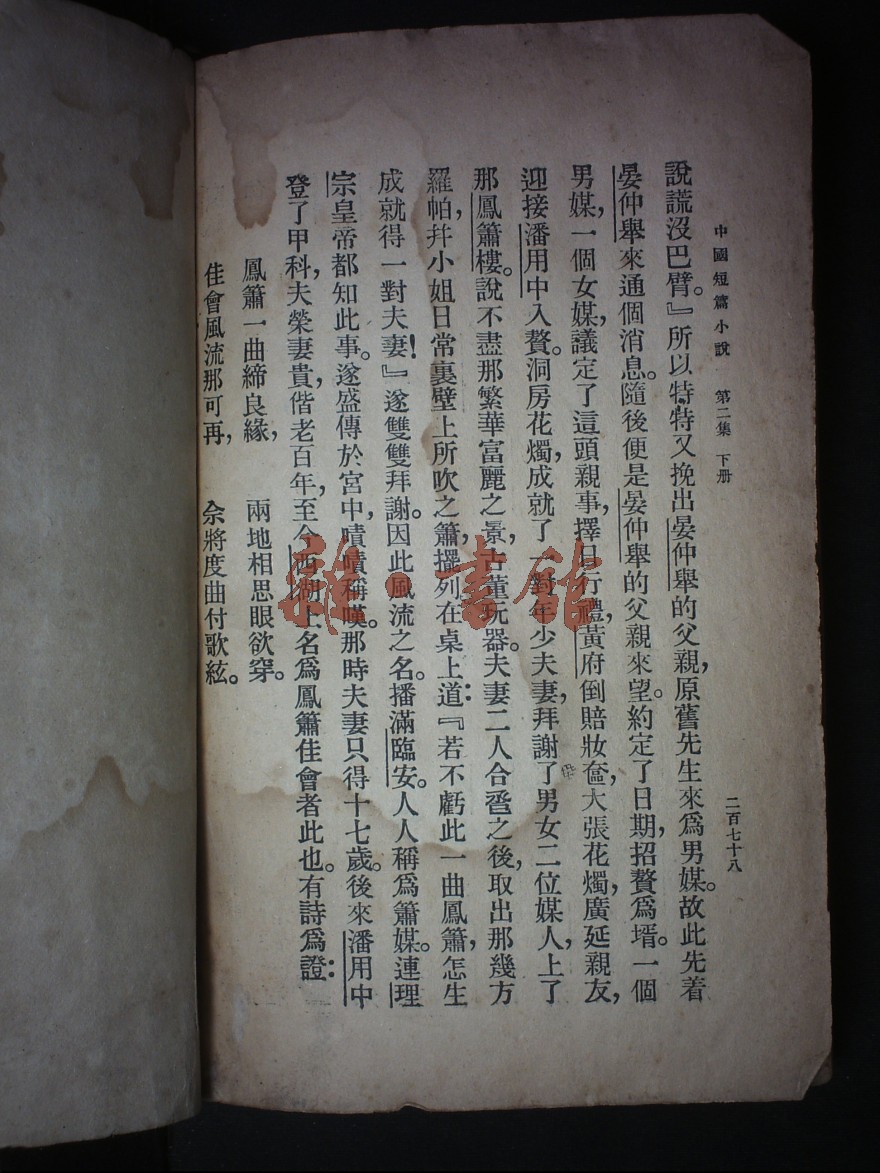 中國短篇小說　第二集　下册
二百七十八
說謊沒巴臂。』所以特特又挽出晏仲舉的父親，原舊先生來爲男媒。故此先着
晏仲舉來通個消息。隨後便是晏仲舉的父親來望。約定了日期，招贅爲壻。一個
男媒，一個女媒，議定了這頭親事，擇日行禮，黃府倒賠妝奩，大張花燭，廣延親友，
迎接潘用中入贅。洞房花燭，成就了一對年少夫妻，拜謝了男女二位媒人，上了
那鳳簫樓。說不盡那繁華富麗之景，古董玩器。夫妻二人合卺之後，取出那幾方
羅帕，幷小姐日常裏壁上所吹之簫，擺列在桌上道：『若不虧此一曲鳳簫，怎生
成就得一對夫妻！』遂雙雙拜謝。因此風流之名。播滿臨安。人人稱爲簫媒。連理
宗皇帝都知此事。遂盛傳於宮中，嘖嘖稱嘆。那時夫妻只得十七歲。後來潘用中
登了甲科，夫榮妻貴，偕老百年，至今西湖上名爲鳳簫佳會者此也。有詩爲證：
鳳簫一曲締良緣，　兩地相思眼欲穿。
佳會風流那可再，　余將度曲付歌絃。
雜·書館